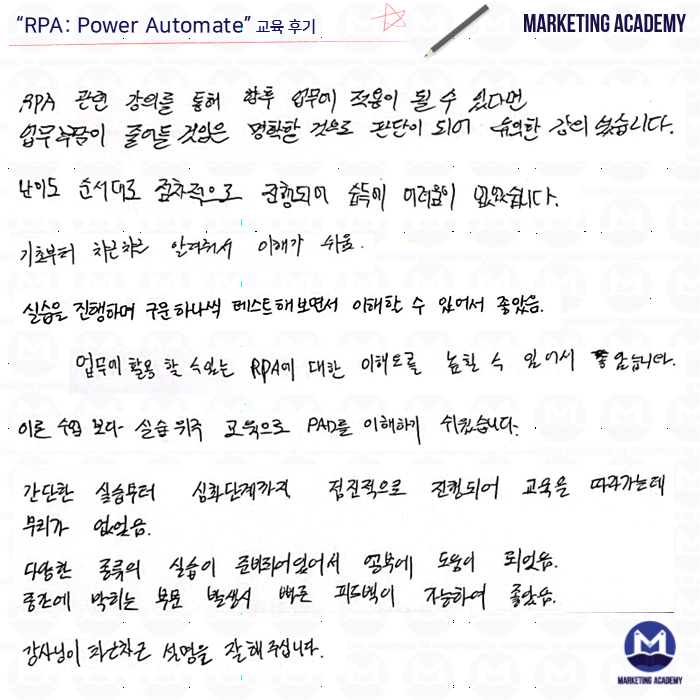 “RPA: Power Automate” 교육 후기
MARKETING ACADEMY
RPA 관련 강의를 통해 향후 업무에 적용이 될 수 있다면
업무수품이 줄어들 것임은 명확할 것으로 판단이 되어 유익한 강의 였습니다.
난이도 순서대로 점차적으로 진행되어 습득에 어려움이 없었습니다.
기초부터 차근차근 알려줘서 이해가 쉬움.
실습을 진행하며 구문 하나씩 테스트해보면서 이해할 수 있어서 좋았음.
업무에 활용 할 수 있는 RPA에 대한 이해도를 높힐 수 있어서 좋았습니다.
이론 수업 보다 실습 위주 교육으로 PAD를 이해하기 쉬웠습니다.
간단한 실습부터 심화단계까지 점진적으로 진행되어 교육을 따라가는데
무리가 없었음.
다양한 종류의 실습이 준비되어있어서 업무에 도움이 되었음.
중간에 막히는 부분 발생시 빠른 피드백이 가능하여 좋았음.
강사님이 차근차근 설명을 잘 해 주십니다.
MARKETING ACADEMY